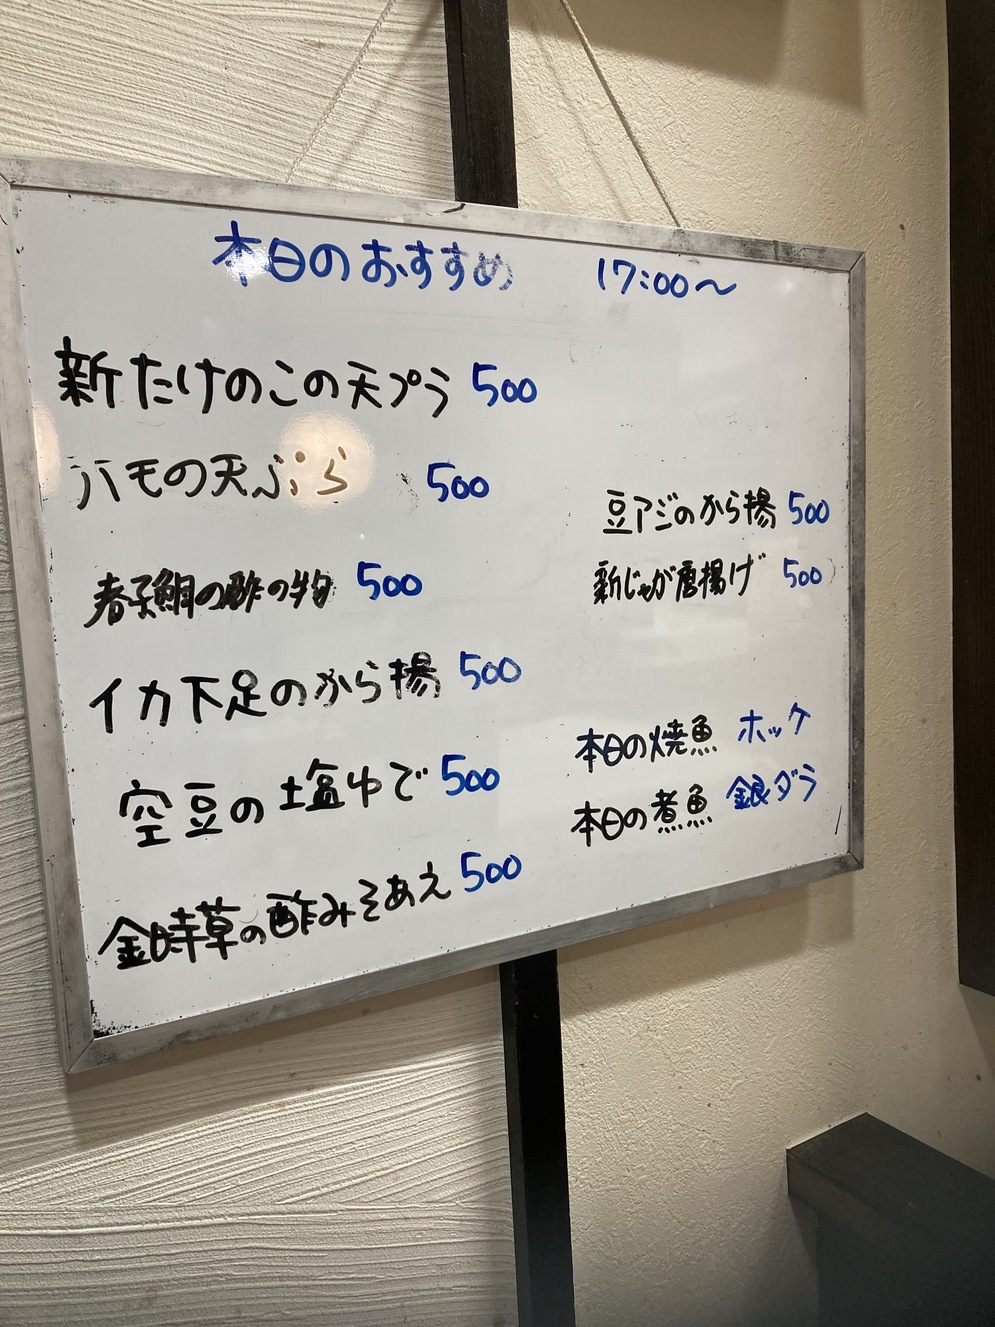 本日のおすすめ 17:00～
新たけのこの天プラ 500
ハモの天ぷら 500
春子鯛の酢の物 500
イカ下足のから揚 500
空豆の塩ゆで 500
金時草の酢みそあえ 500
豆アジのから揚 500
新じゃが唐揚げ 500
本日の焼魚 ホッケ
本日の煮魚 銀ダラ